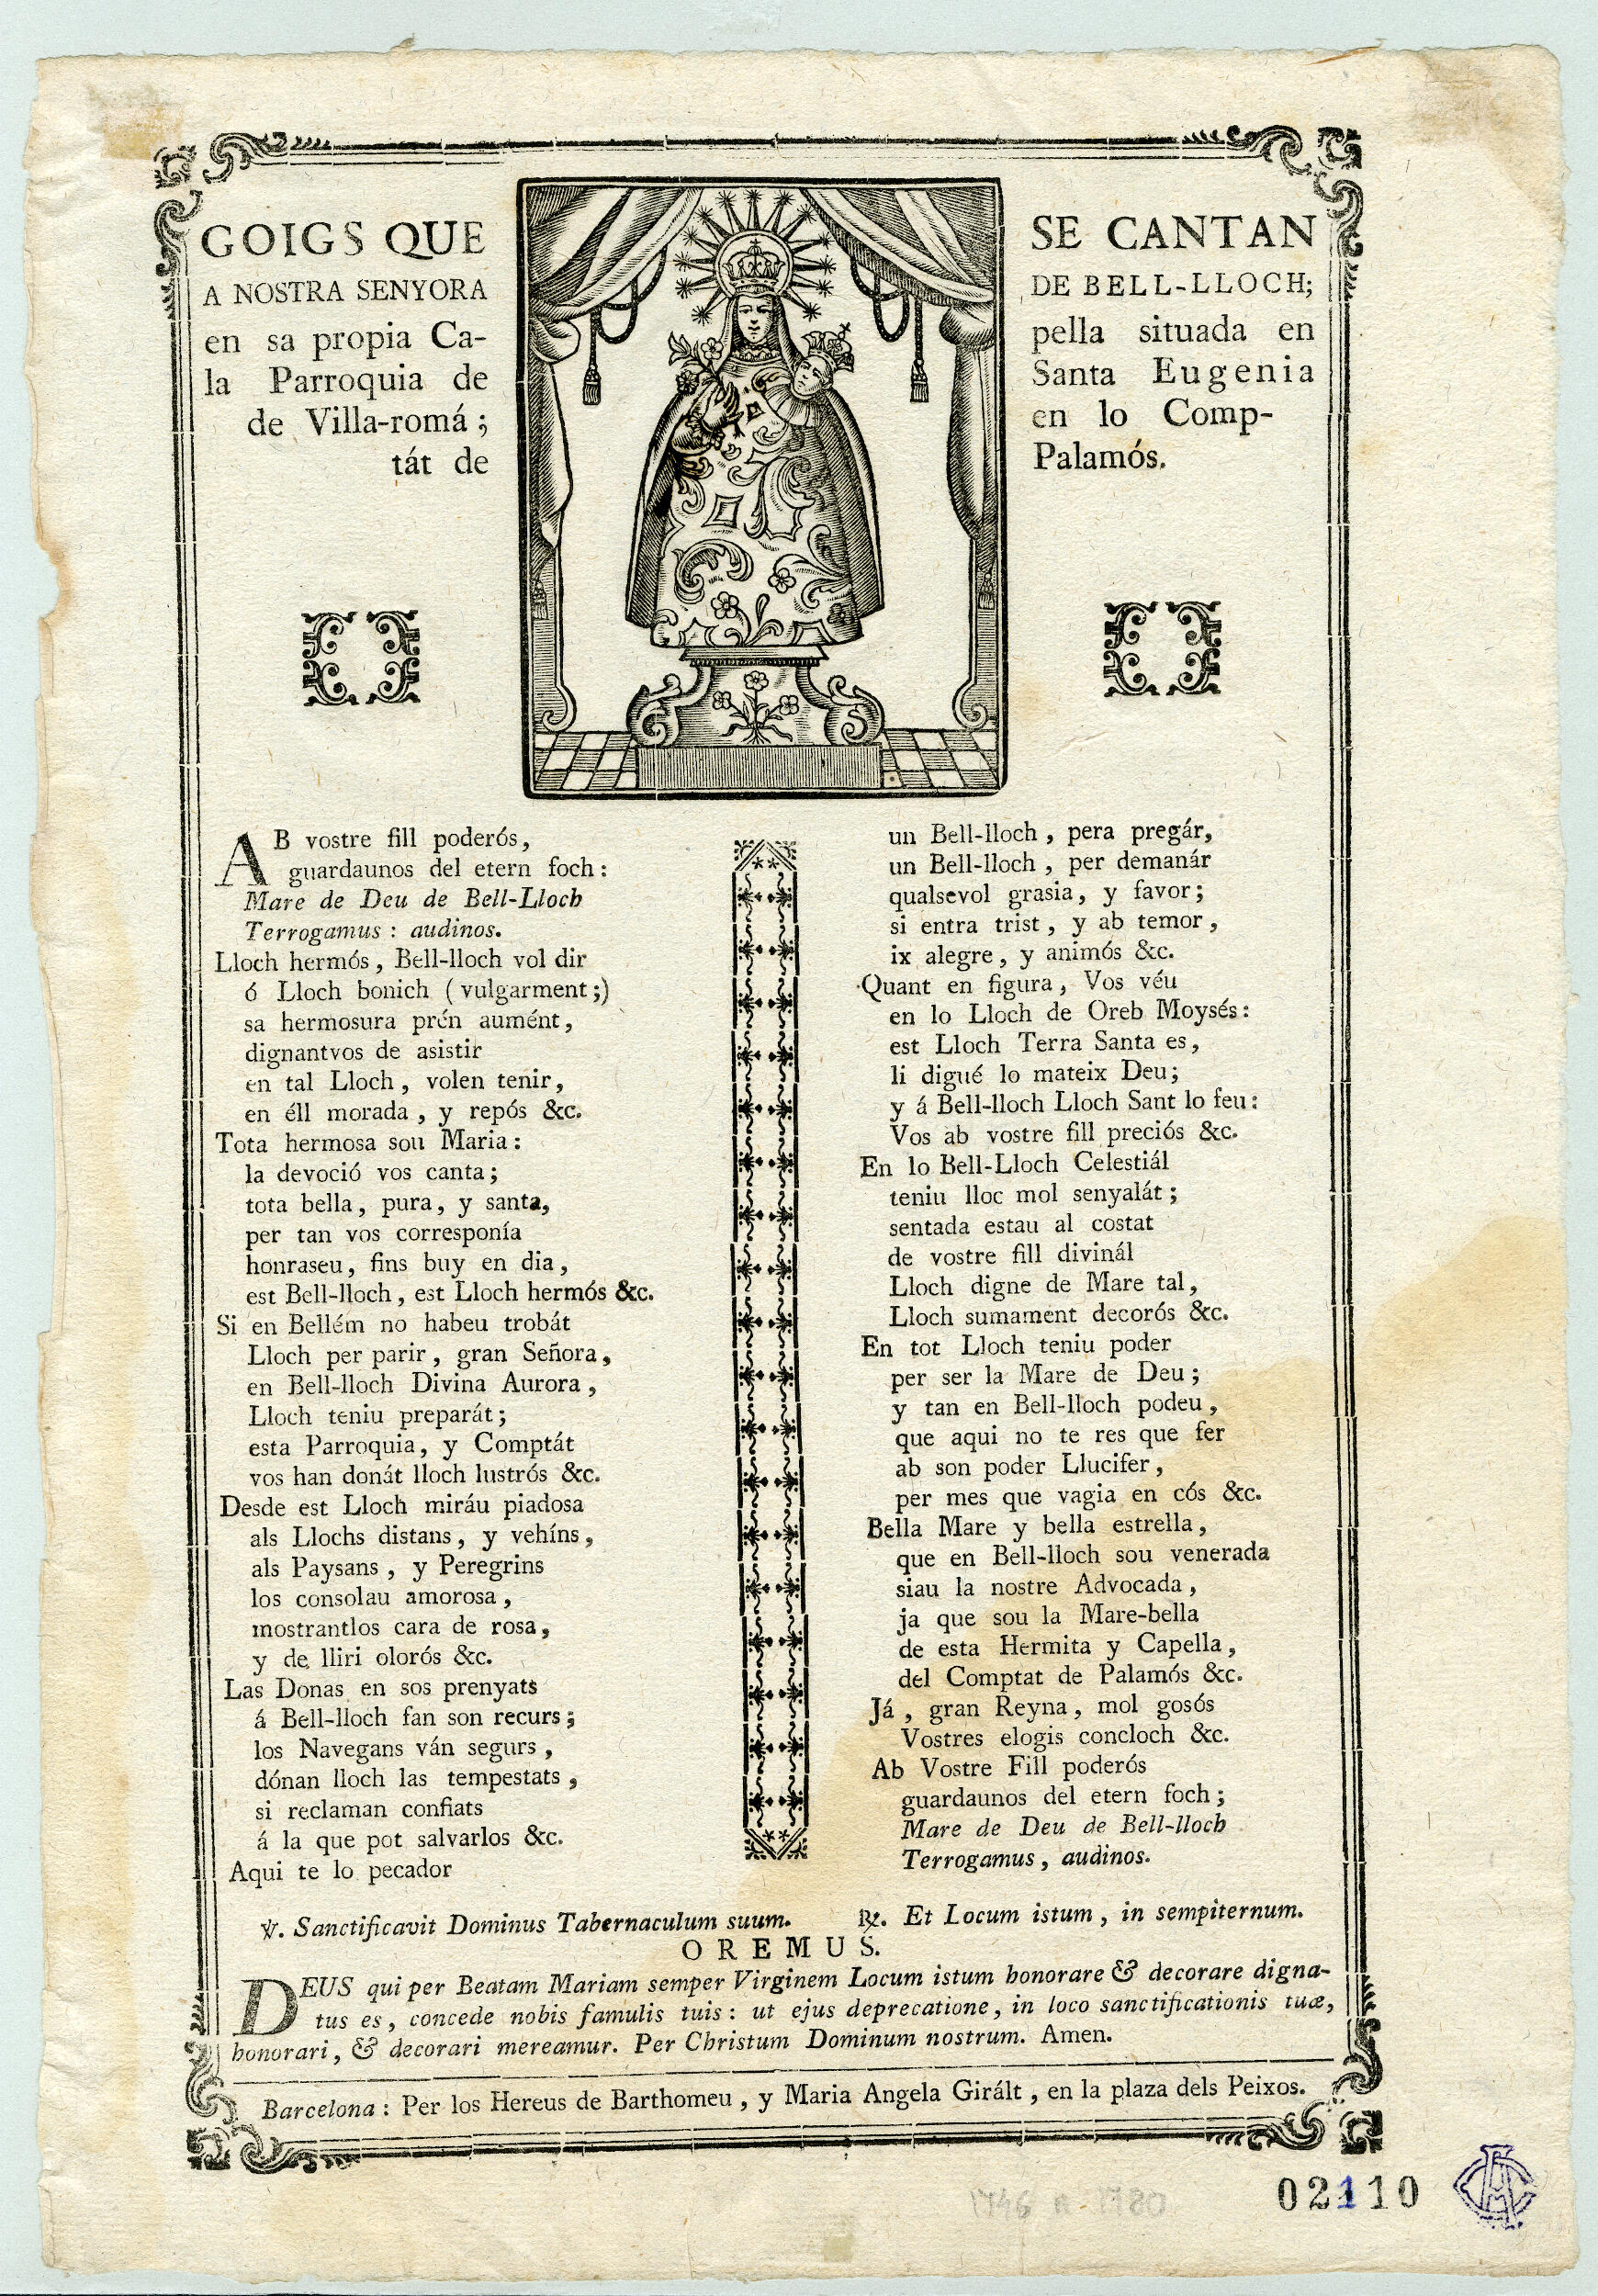 GOIGS QUE SE CANTAN
A NOSTRA SENYORA DE BELL-LLOCH;
en sa propia Ca- pella situada en
la Parroquia de Santa Eugenia
de Villa-romá; en lo Comp-
tát de Palamós.
AB vostre fill poderós,
guardaunos del etern foch:
Mare de Deu de Bell-Lloch
Terrogamus: audinos.
Lloch hermós, Bell-lloch vol dir
ó Lloch bonich (vulgarment;)
sa hermosura prén aumént,
dignantvos de asistir
en tal Lloch, volen tenir,
en éll morada, y repós &c.
Tota hermosa sou Maria:
la devoció vos canta;
tota bella, pura, y santa,
per tan vos corresponía
honraseu, fins huy en dia,
est Bell-lloch, est Lloch hermós &c.
Si en Bellém no habeu trobát
Lloch per parir, gran Señora,
en Bell-lloch Divina Aurora,
Lloch teniu preparát;
esta Parroquia, y Comptát
vos han donát lloch lustrós &c.
Desde est Lloch miráu piadosa
als Llochs distans, y vehíns,
als Paysans, y Peregrins
los consolau amorosa,
mostrantlos cara de rosa,
y de lliri olorós &c.
Las Donas en sos prenyats
á Bell-lloch fan son recurs;
los Navegans ván segurs,
dónan lloch las tempestats,
si reclaman confiats
á la que pot salvarlos &c.
Aqui te lo pecador
un Bell-lloch, pera pregár,
un Bell-lloch, per demanár
qualsevol grasia, y favor;
si entra trist, y ab temor,
ix alegre, y animós &c.
Quant en figura, Vos véu
en lo Lloch de Oreb Moysés:
est Lloch Terra Santa es,
li digué lo mateix Deu;
y á Bell-lloch Lloch Sant lo feu:
Vos ab vostre fill preciós &c.
En lo Bell-Lloch Celestiál
teniu lloc mol senyalát;
sentada estau al costat
de vostre fill divinál
Lloch digne de Mare tal,
Lloch sumament decorós &c.
En tot Lloch teniu poder
per ser la Mare de Deu;
y tan en Bell-lloch podeu,
que aqui no te res que fer
ab son poder Llucifer,
per mes que vagia en cós &c.
Bella Mare y bella estrella,
que en Bell-lloch sou venerada
siau la nostre Advocada,
ja que sou la Mare-bella
de esta Hermita y Capella,
del Comptat de Palamós &c.
Já, gran Reyna, mol gosós
Vostres elogis concloch &c.
Ab Vostre Fill poderós
guardaunos del etern foch;
Mare de Deu de Bell-lloch
Terrogamus, audinos.
℣. Sanctificavit Dominus Tabernaculum suum. ℟. Et Locum istum, in sempiternum.
OREMUS.
DEUS qui per Beatam Mariam semper Virginem Locum istum honorare & decorare digna-
tus es, concede nobis famulis tuis: ut ejus deprecatione, in loco sanctificationis tuæ,
honorari, & decorari mereamur. Per Christum Dominum nostrum. Amen.
Barcelona: Per los Hereus de Barthomeu, y Maria Angela Girált, en la plaza dels Peixos.
1746 a 1780
02110